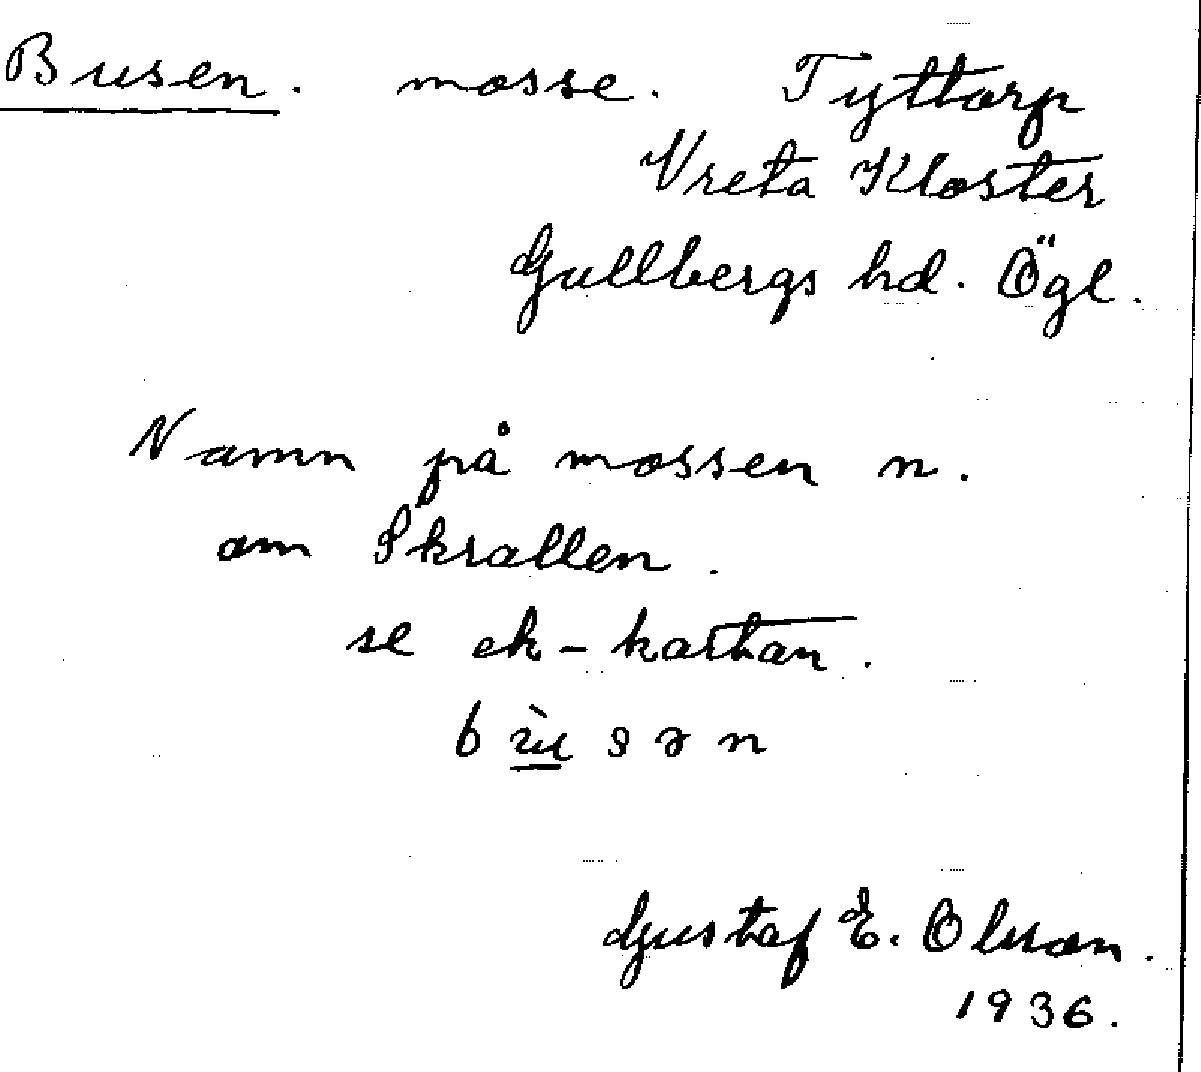 Busen. mosse. Tyttorp
Vreta Kloster
Gullbergs hd. Ögl.
Namn på mossen n.
om Skrallen.
se ek-kartan.
bu̠̇sən
Gustaf E. Olsson.
1936.